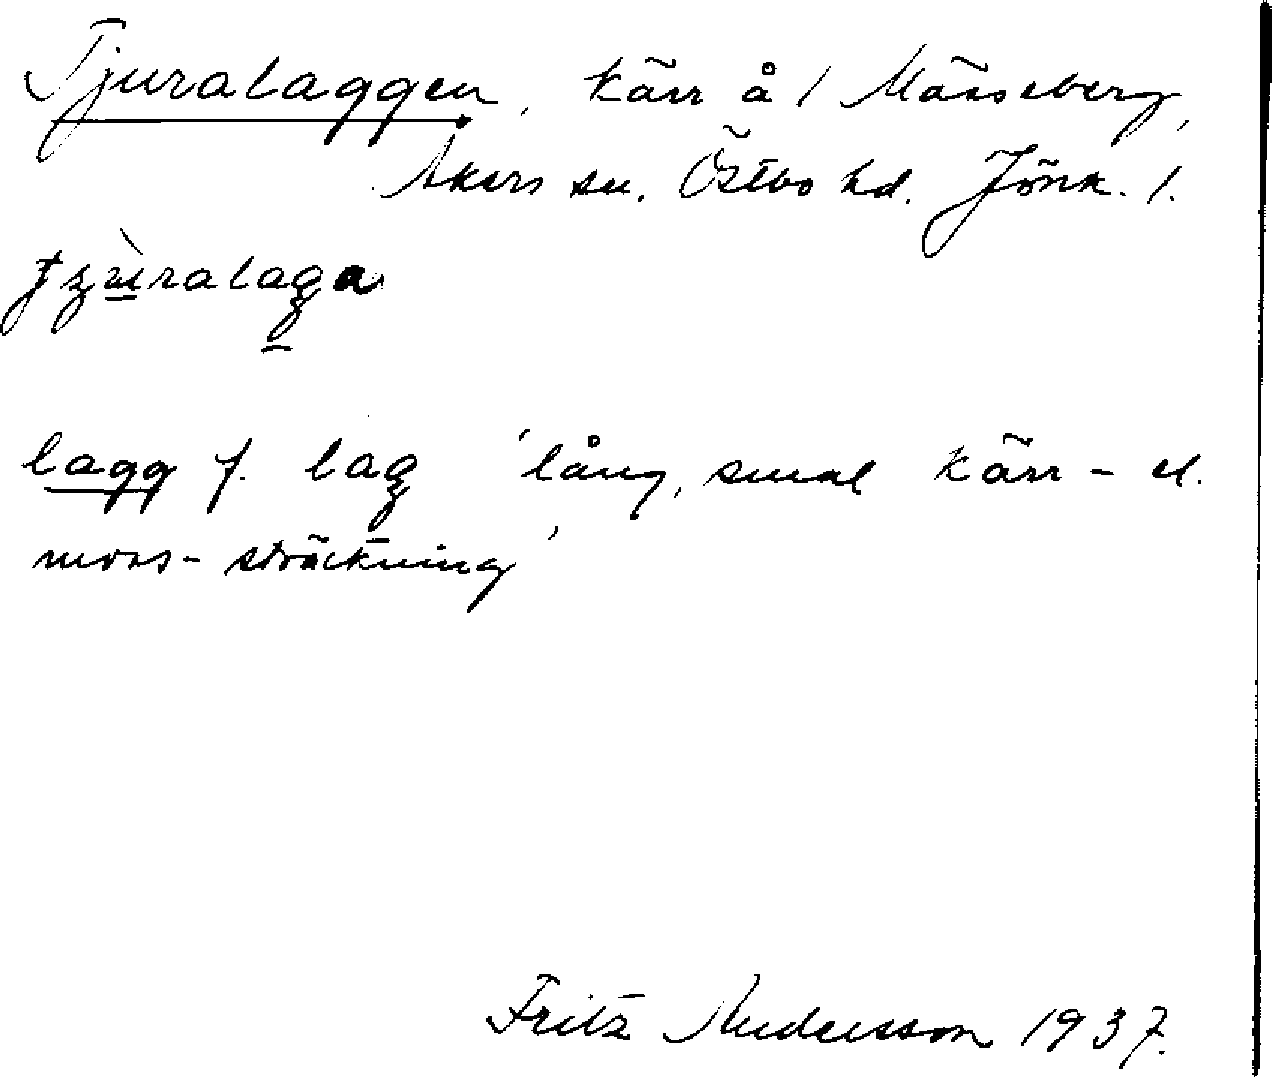 Tjuralaggen, kärr å 1 Mässeberg,
Åkers sn. Östbo hd. Jönk. l.
lagg f. lag 'lång, smal kärr- el.
moss-sträckning'
Fritz Andersson 1937.